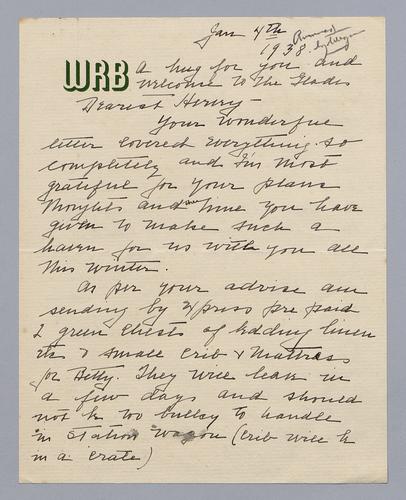 Jan 4th
1938.
Answered
by Wynn
WRB
A hug for you and
welcome to the Glades
Dearest Henry -
Your wonderful
letter covered everything so
completely and I'm most
grateful for your plans
thoughts and the time you have
given to make such a
haven for us with you all
this winter.
As per your advise am
sending by Xpress pre paid
2 green chests of bedding linen
etc & small crib & mattrass
for Betty. They will leave in
a few days and should
not be too bulky to handle
in Station Wagon (crib will be
in a crate)